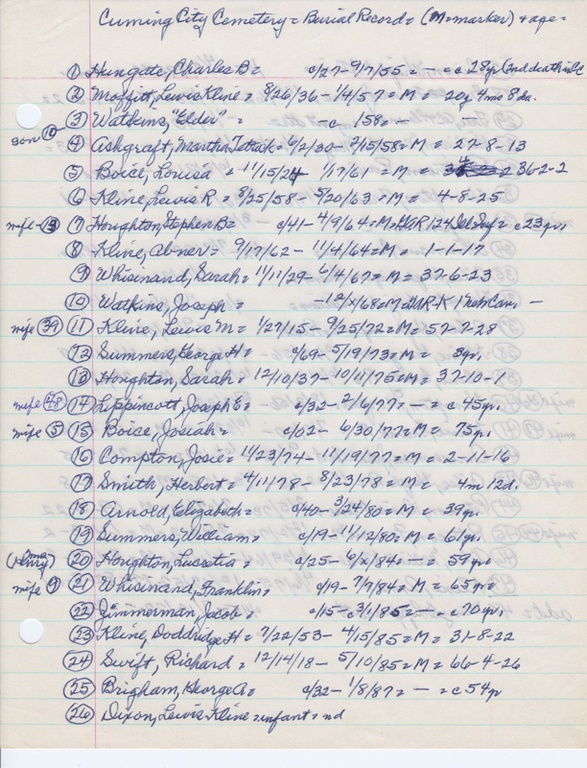 Cuming City Cemetery = Burial Record = (M=marker) + age =
① Hungate, Charles B = c/27 - 9/7/55 = — = c 28 yr (2nd death in
② Moffitt, Lewis Kline = 8/26/36 - 1/4/57 = M = 20y 4mo 8da.
③ Watkins, "Elder" = — c 158 = — —
son ⑩ ④ Ashgraft, Martha = 6/2/30 - 2/15/58 = M = 27-8-13
⑤ Boice, Louisa = 11/15/24 1/17/61 = M = 36-2-2
⑥ Kline, Lewis R = 8/25/58 - 5/20/63 = M = 4-8-25
wife - ⑬ ⑦ Houghton, Stephen B = c/41 - 4/9/64 = M = GAR 124 = c 23 yr.
⑧ Kline, Abner = 9/17/62 - 11/4/64 = M = 1-1-17
⑨ Whisinand, Sarah = 11/11/29 - 6/4/67 = M = 37-6-23
⑩ Watkins, Joseph = - 12/x/68 = M = GAR-K 1 Neb Cav. —
wife ㊴ ⑪ Kline, Lewis M = 1/27/15 - 9/25/72 = M = 57-7-28
⑫ Summers, George H = c/69 - 5/19/73 = M = 3 yr.
⑬ Houghton, Sarah = 12/10/37 - 10/11/75 = M = 37-10-1
wife ㊽ ⑭ Lippincott, Joseph E = c/32 - 2/6/77 = — = c 45 yr.
wife ⑤ ⑮ Boice, Josiah = c/02 - 6/30/77 = M = 75 yr.
⑯ Compton, Josie = 11/23/74 - 11/19/77 = M = 2-11-16
⑰ Smith, Herbert = 4/11/78 - 8/23/78 = M = 4m 12d.
⑱ Arnold, Elizabeth = c/40 - 3/24/80 = M = 39 yr.
⑲ Summers, William = c/19 - 11/12/80 = M = 61 yr.
(Mrs Henry) ⑳ Houghton, Lucretia = c/25 - 6/x/84 = — = 59 yr.
wife ⑨ ㉑ Whisinand, Franklin = c/19 - 7/7/84 = M = 65 yr.
㉒ Zimmerman, Jacob = c/15 - c 3/1/85 = — = c 70 yr.
㉓ Kline, Doddridge H = 7/22/53 - 4/15/85 = M = 31-8-22
㉔ Swift, Richard = 12/14/18 - 5/10/85 = M = 66-4-26
㉕ Brigham, George A = c/32 - 1/8/87 = — = c 54 y
㉖ Dixon, Lewis Kline = infant = nd